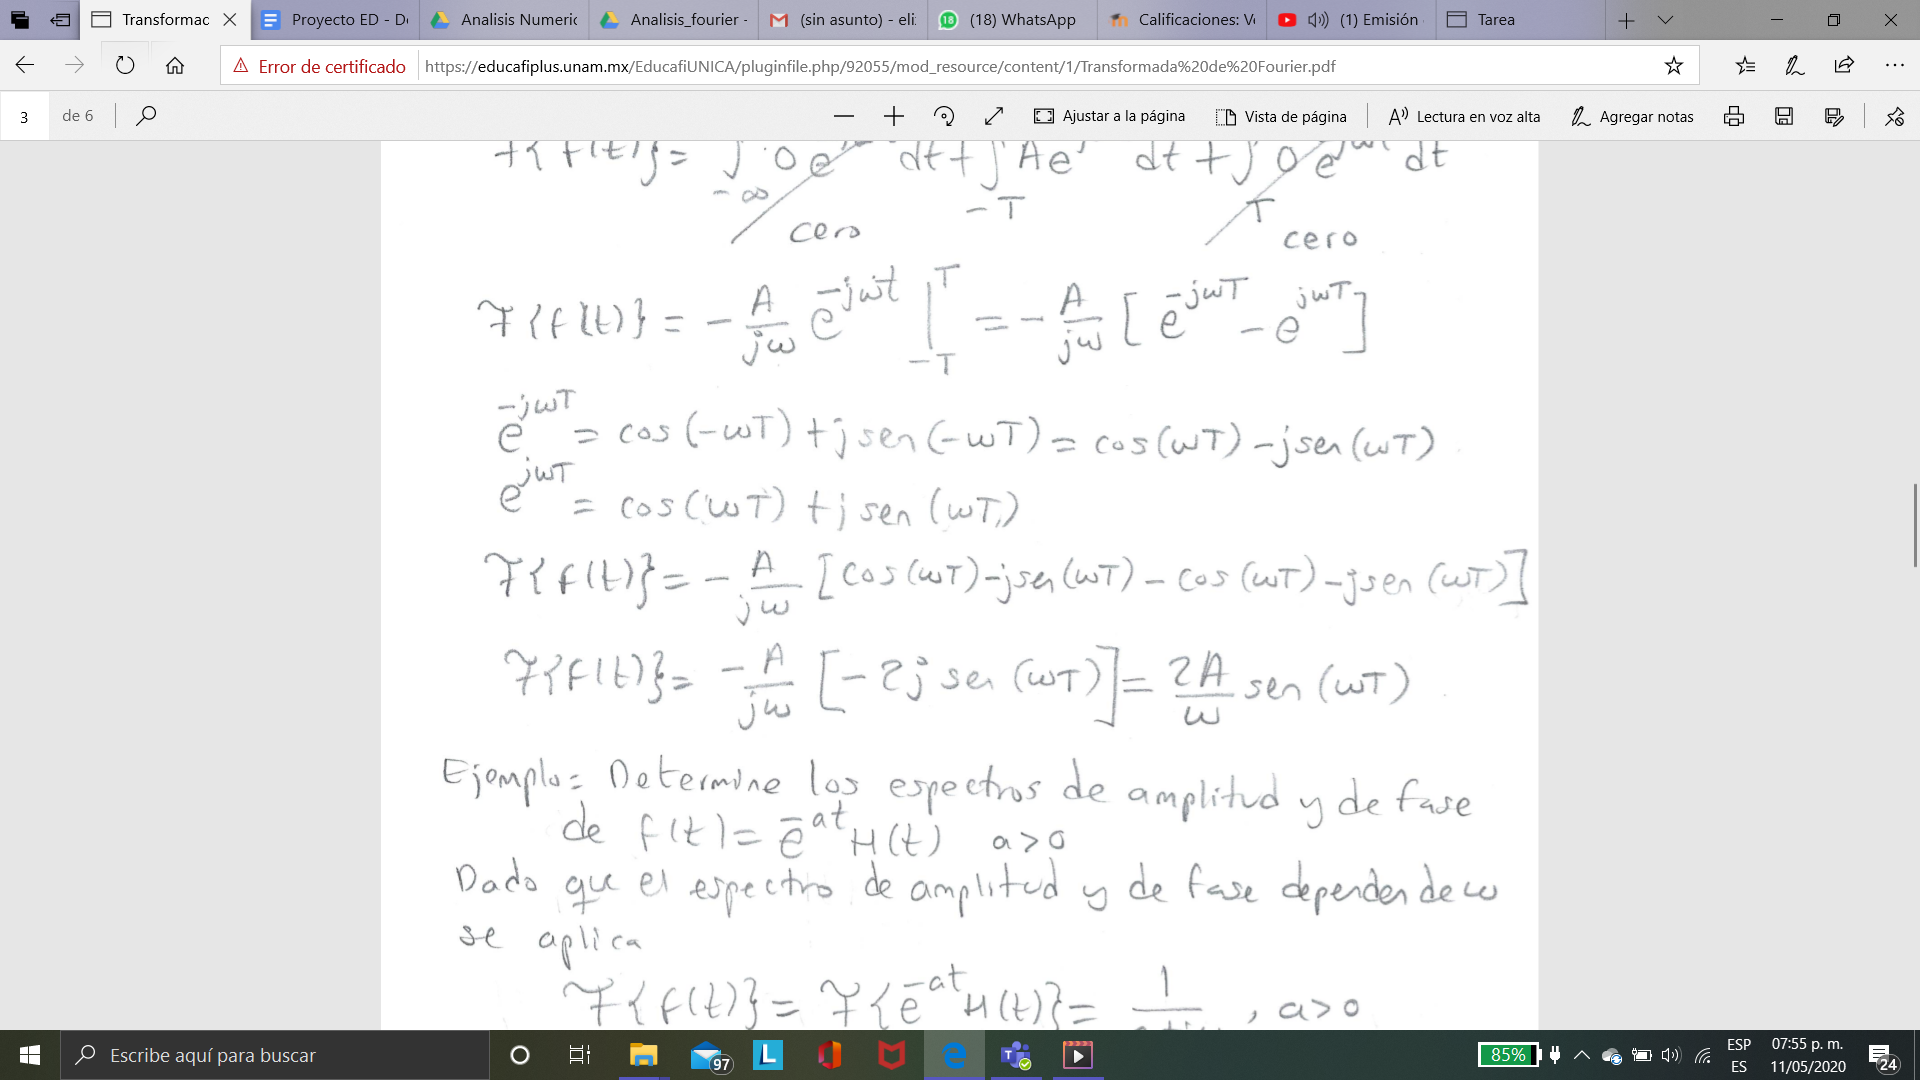 Transformac
Proyecto ED - Do
Analisis Numeric
Analisis_fourier -
(sin asunto) - eli
(18) WhatsApp
Calificaciones: Vo
(1) Emisión
Tarea
Error de certificado
https://educafiplus.unam.mx/EducafiUNICA/pluginfile.php/92055/mod_resource/content/1/Transformada%20de%20Fourier.pdf
3 de 6
Ajustar a la página
Vista de página
Lectura en voz alta
Agregar notas
F{f(t)} = ∫_{-∞} 0 e dt + ∫_{-T} A e dt + ∫_{T} 0 e^{jωt} dt
cero cero
F{f(t)} = - A/jω e^{-jωt} |_{-T}^{T} = - A/jω [e^{-jωT} - e^{jωT}]
e^{-jωT} = cos(-ωT) + j sen(-ωT) = cos(ωT) - jsen(ωT)
e^{jωT} = cos(ωT) + j sen(ωT)
F{f(t)} = - A/jω [cos(ωT) - jsen(ωT) - cos(ωT) - jsen(ωT)]
F{f(t)} = - A/jω [-2j sen(ωT)] = 2A/ω sen(ωT)
Ejemplo: Determine los espectros de amplitud y de fase
de f(t) = e^{-at} H(t) a>0
Dado que el espectro de amplitud y de fase dependen de ω
se aplica
F{f(t)} = F{e^{-at} H(t)} = 1/a+jω , a>0
Escribe aquí para buscar
97
85%
ESP
ES
07:55 p. m.
11/05/2020
24